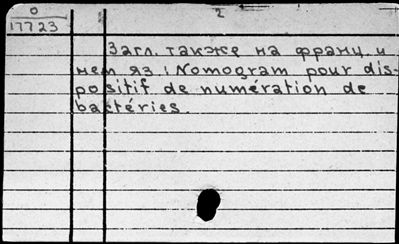 0 2
17723
Загл. также на франц. и
нем яз: Nomogram pour dis-
positif de numération de
bactéries.